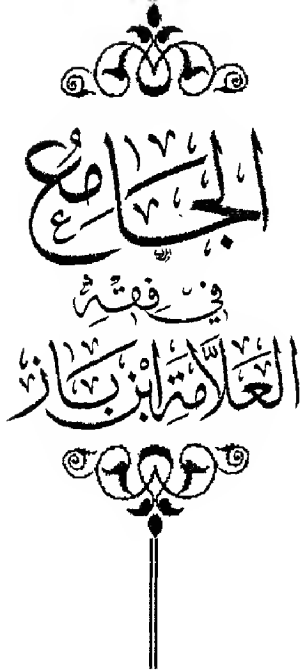 الجَامِعُ
فِي فِقْهِ
العَلَّامَةِ ابْنِ بَاز